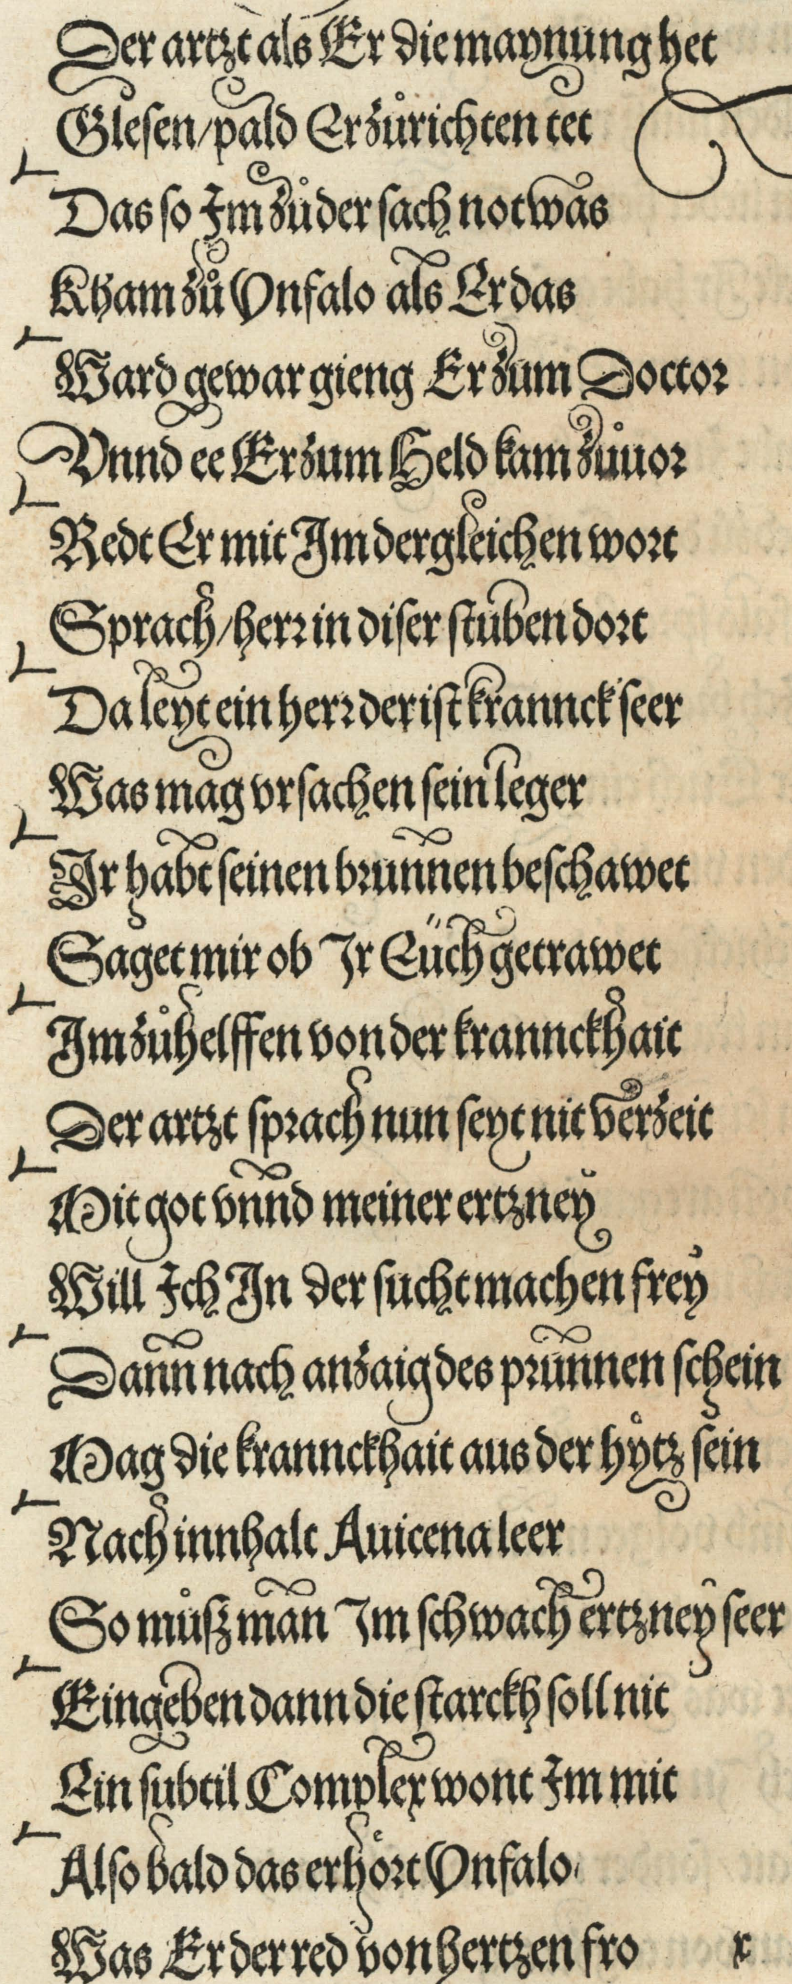 Der artzt als Er die maynung het
Glesen/pald Er zůrichten tet
Das so Im zů der sach not was
Kham zů Vnfalo als Er das
Ward gewar gieng Er zum Doctor
Vnnd ee Er zum Held kam zůuor
Redt Er mit Im dergleichen wort
Sprach/herr in diser stuben dort
Da leyt ein herr der ist krannck seer
Was mag vrsachen sein leger
Ir habt seinen brunnen beschawet
Saget mir ob Ir Eüch getrawet
Im zůhelffen von der krannckhait
Der artzt sprach nun seyt nit verzeit
Mit got vnnd meiner ertzney
Will Ich In der sucht machen frey
Dann nach anzaig des prunnen schein
Mag die krannckhait aus der hytz sein
Nach innhalt Auicena leer
So můsz man Im schwach ertzney seer
Eingeben dann die starckh soll nit
Ein subtil Complex wont Im mit
Also bald das erhört Vnfalo
Was Er der red von hertzen fro x